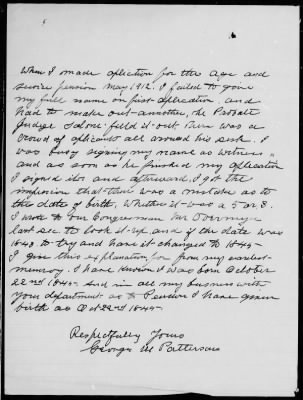 When I made aplication for the Age and
service pension May 1912. I failed to give
my full name on first aplication. and
had to make out another, the Probate
Judge feild it out. There was a
crowd of aplicant all around his desk. I
was busy signing my name as witness
and as soon as he finished my aplication
I signed it and afterward I got the
impresion that there was a mistake as to
the date of birth, Whether it was a 5 or 8.
I wrote to our Congressman Mr
last Dec to look it up and if the date was
1848. to try and have it changed to 1845-
I give this explanation, for from my earliest
memory. I have known I was born October
22nd 1845- And in all my business with
your department as to Pension I have given
birth as Oct 22nd 1845-
Respectfully Yours
George M Patterson